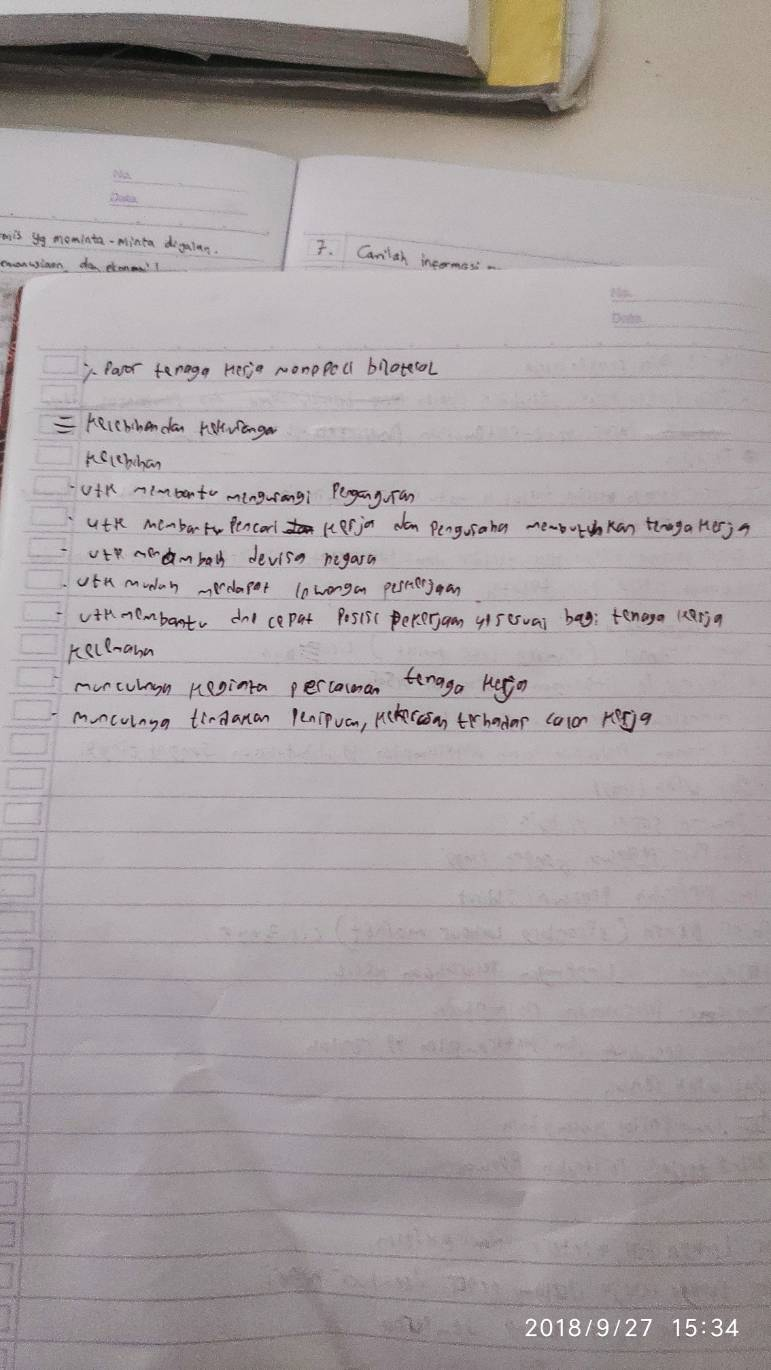 No.
Date
mis yg meminta-minta dijalan.
dan ekonomi!
7. Carilah informasi
No.
Date
Pasar tenaga Kerja Monopoli bilateral
= Kelebihan dan Kekurangan
Kelebihan
- Utk membantu mengurangi Pengangguran
- Utk membantu Pencari Kerja dan Pengusaha membutuhkan tenaga Kerja
- Utk menambah devisa negara
- Utk mudah mendapat lowongan pekerjaan
- Utk membantu dni cepat Posisi Pekerjaan yf sesuai bagi tenaga Kerja
Kelemahan
- munculnya Kegiata percaloan tenaga Kerja
- Munculnya tindakan Penipuan, Kekerasan terhadap calon Kerja
2018/9/27 15:34